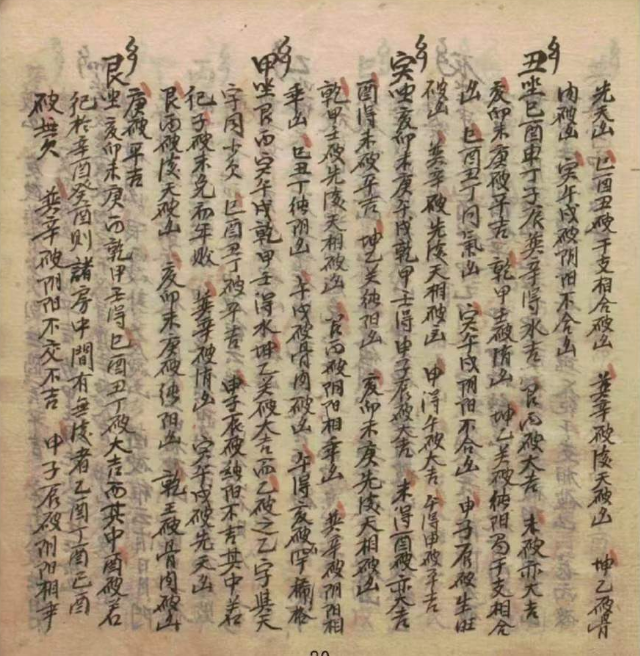 先天凶 巳酉丑破干支相合破凶 巽辛破後天破凶 坤乙破骨
肉破凶 寅午戌破阴阳不合凶
丑坐巳酉申丁子辰巽辛得水吉 艮丙破大吉 未破亦大吉
亥卯未庚破平吉 乾甲壬破情凶 坤乙破纯阳局干支相合
凶 巳酉丑丁同氣凶 寅午戌阴阳不合凶 申子辰破生旺
破凶 巽辛破先後天相破凶 甲得午破大吉 午得甲破平吉
寅坐亥卯未庚午戌乾甲壬得申子辰破大吉 未得酉破亦大吉
酉得未破平吉 坤乙癸纯阳凶 亥卯未庚先後天相破凶
乾甲壬破先後天相破凶 艮丙破阴阳相乘凶 巽辛破阴阳相
乘凶 巳丑丁纯阴凶 午戌破骨肉破凶 午得亥破
甲坐艮丙寅午戌乾甲壬得水坤乙破大吉而乙破之乙字與天
字同少欠 巳酉丑丁破平吉 申子辰破纯阳不吉其中若
犯子破未免初年敗 巽辛破情凶 寅午戌破先天凶
艮丙破後天破凶 亥卯未庚破纯阳凶 乾壬破骨肉破凶
庚破平吉
艮坐亥卯未庚丙乾甲壬得巳酉丑丁破大吉而其中酉破若
犯於辛酉癸酉則諸房中間有無後者乙酉丁酉己酉
破無欠 巽辛破阴阳不交不吉 申子辰破阴阳相乖